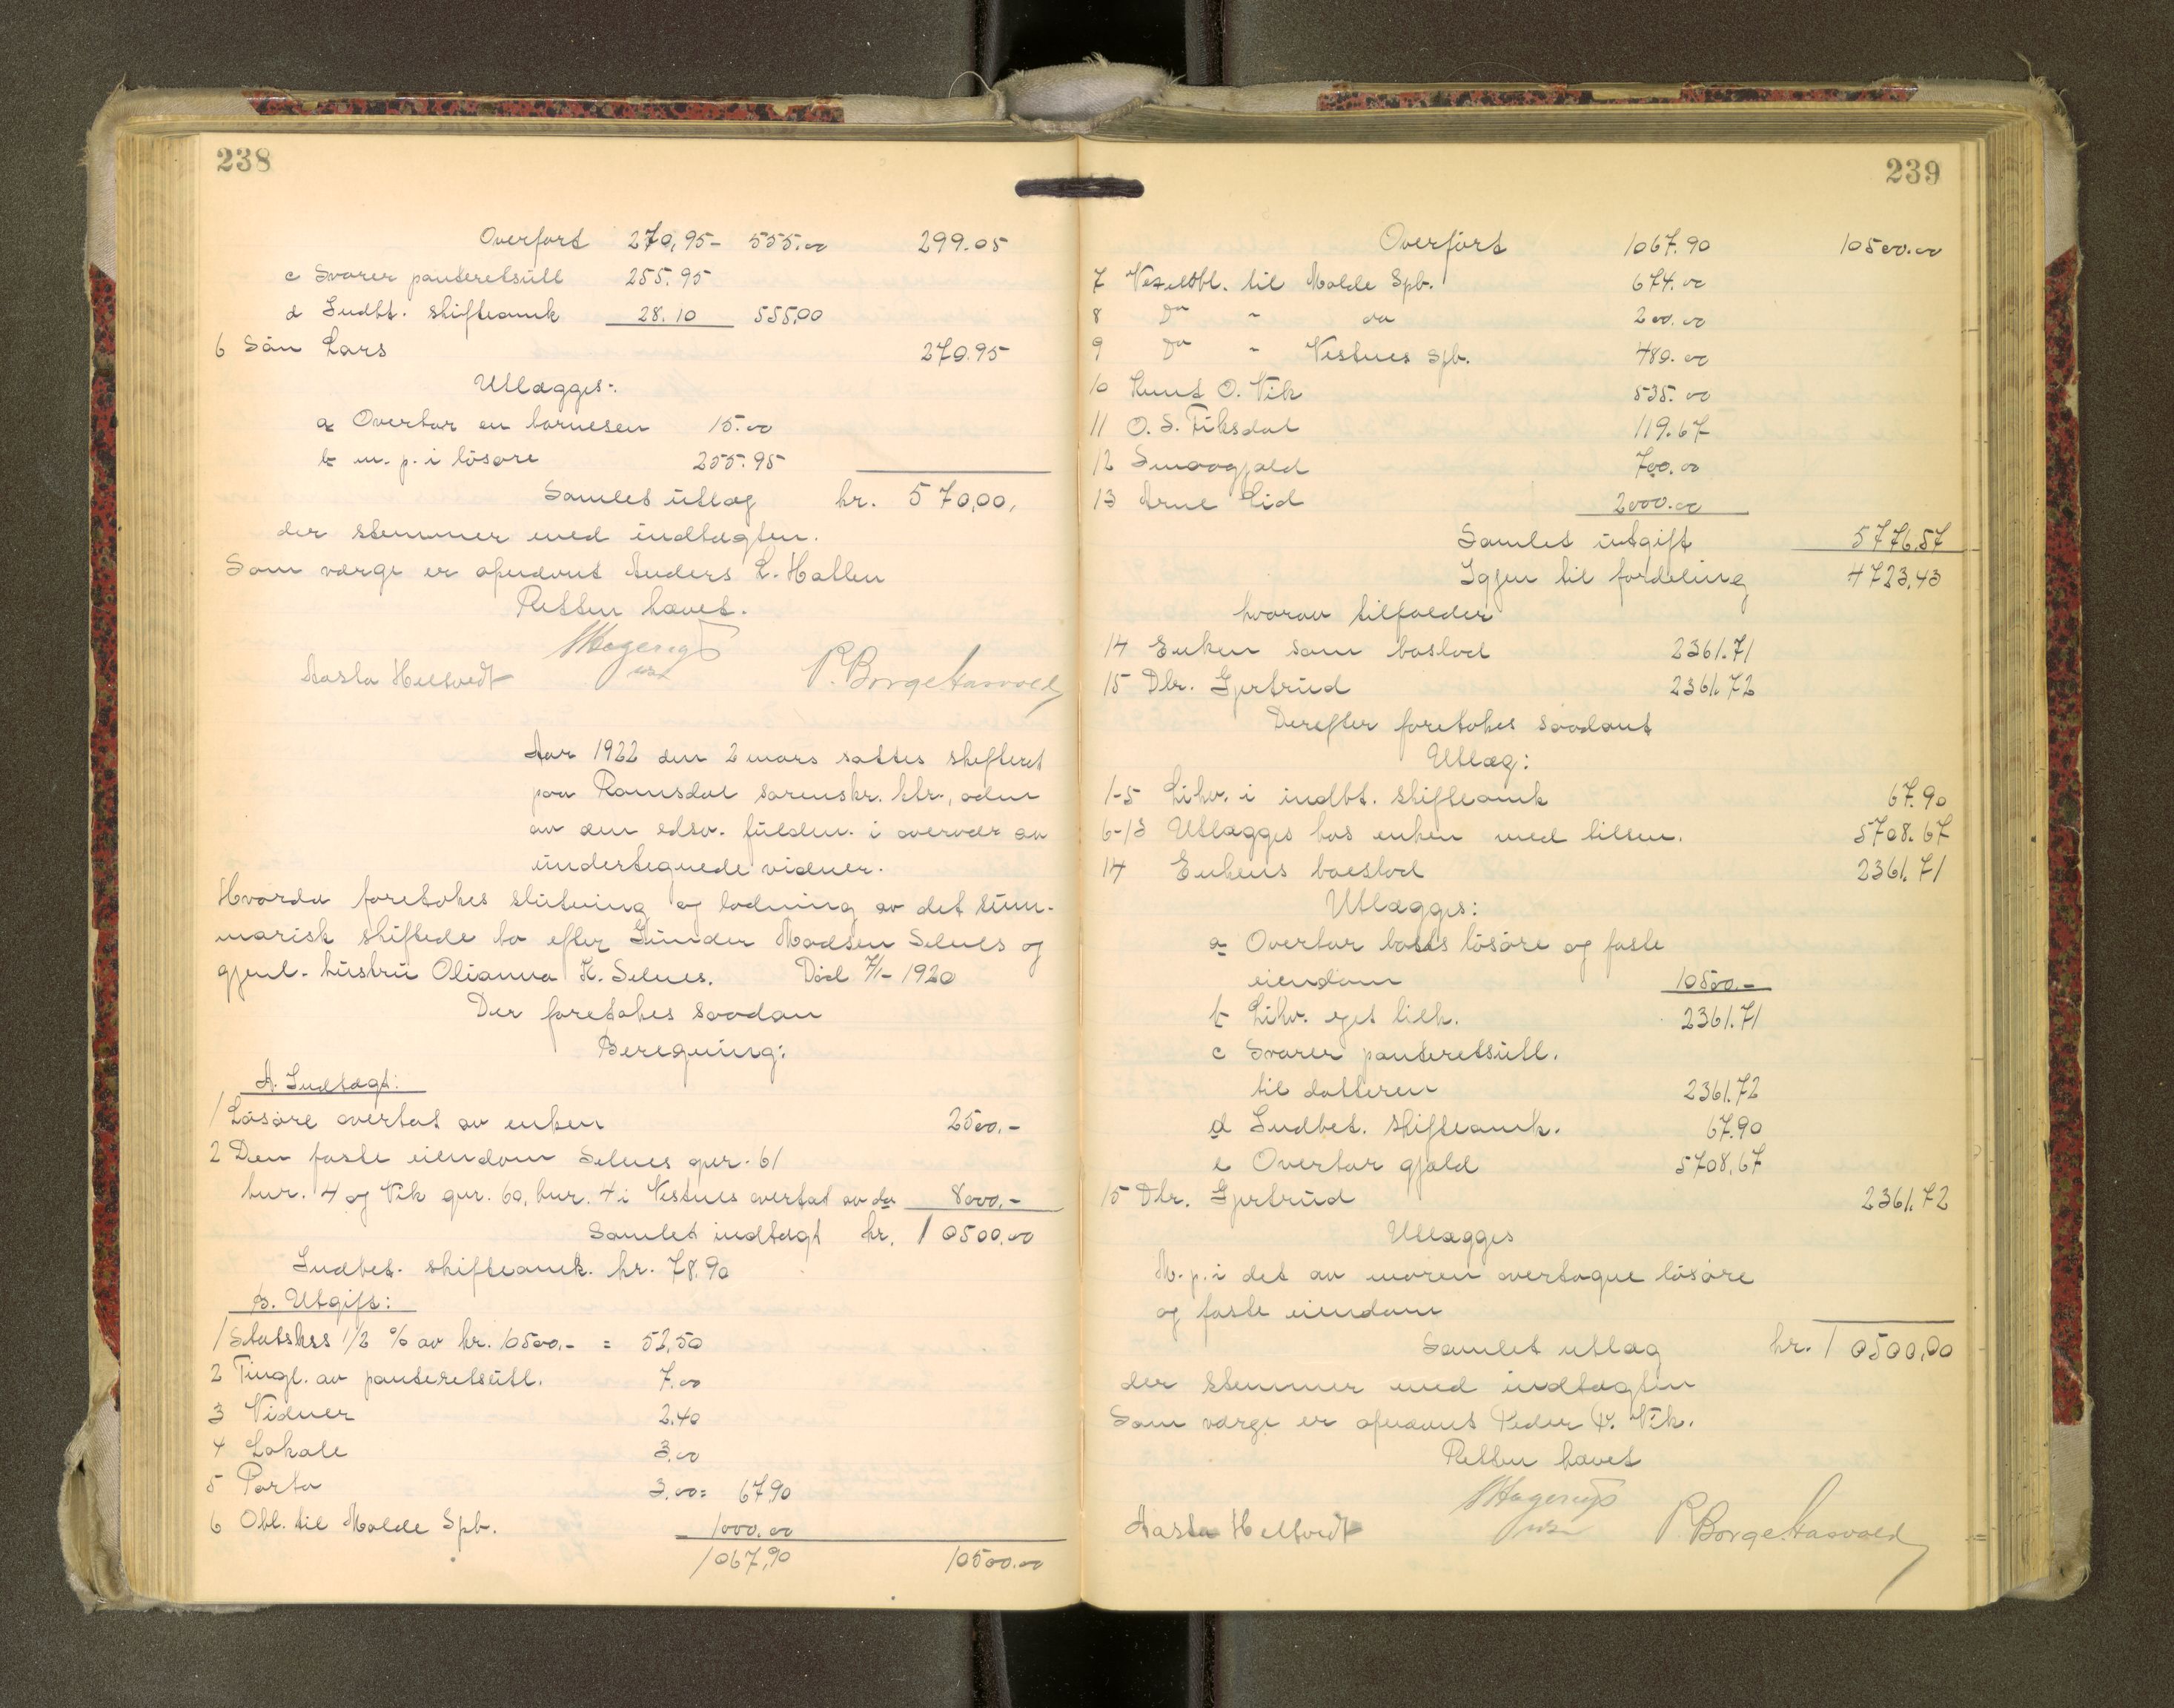 238
Overført 270,95- 555.00 299.05
c Svarer panteretsutl 255.95
d Indbt. skifteomk 28.10 555,00
6 Søn Lars 270.95
Utlægges:
a Overtar en barneseng 15.00
b m. p. i løsøre 255.95
Samlet utlæg kr. 570,00,
der stemmer med indtægten.
Som værge er opnævnt Anders L. Hallen
Retten hævet.
Hagerup
Aasta Heltvedt P. Borge
Aar 1922 den 2 mars sattes skifteret
paa Romsdal sorenskr. ktr., adm
av den edsv. fuldm. i overvær av
undertegnede vidner.
Hvorda foretokes slutning og lodning av det sum-
marisk skiftede bo efter Gunder Madsen Selnes og
gjenl. hustru Olianna K. Selnes. Død 7/1- 1920
Der foretokes saadan
Beregning:
A. Indtægt:
1 Løsøre overtat av enken 2500,-
2 Den faste eiendom Selnes gnr. 61
bnr. 4 og Vik gnr. 60, bnr. 4 i Vestnes overtat av do 8000,-
Samlet indtægt kr. 10500.00
Indbet. skifteomk. kr. 78.90
B. Utgift:
1 Statskss 1/2 % av kr. 10500,- = 52,50
2 Tingl. av panteretsutl. 7.00
3 Vidner 2.40
4 Lokale 3.00
5 Porto 3.00= 67.90
6 Obl. til Molde Spb. 1000.00
1067,90 10500.00
239
Overført 1067.90 10500.00
7 Vexelobl. til Molde Spb. 674.00
8 Do - do 200.00
9 Do - Vestnes Spb. 480.00
10 Knut O. Vik 535.00
11 O. S. Fiksdal 119.67
12 Smaagjæld 700.00
13 Arne Lid 2000.00
Samlet utgift 5776,57
Igjen til fordeling 4723,43
hvorav tilfalder
14 Enken som boslod 2361.71
15 Dtr. Gjertrud 2361.72
Derefter foretokes saadant
Utlæg:
1-5 Likv. i indbt. skifteomk 67.90
6-13 Utlægges hos enken med tilsm. 5708.67
14 Enkens boeslod 2361.71
Utlægges:
a Overtar boets løsøre og faste
eiendom 10500.-
b Likv. eget tilk. 2361.71
c Svarer panteretsutl.
til datteren 2361.72
d Indbet. skifteomk. 67.90
e Overtar gjæld 5708,67
15 Dtr. Gjertrud 2361.72
Utlægges
M. p. i det av moren overtagne løsøre
og faste eiendom
Samlet utlæg kr. 10500,00
der stemmer med indtægten
Som værge er opnævnt Peder P. Vik.
Retten hævet
Hagerup
Aasta Heltvedt P. Borge